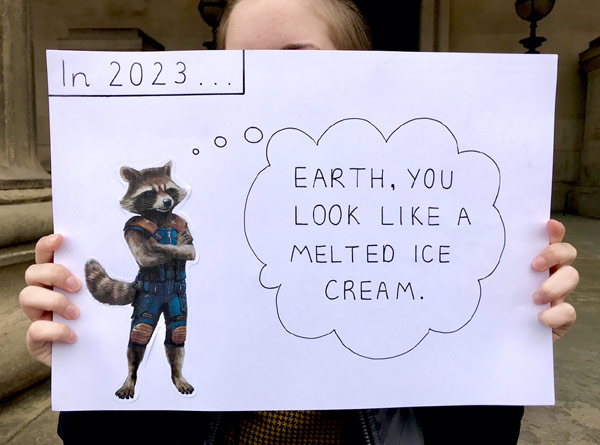 In 2023...
EARTH, YOU
LOOK LIKE A
MELTED ICE
CREAM.